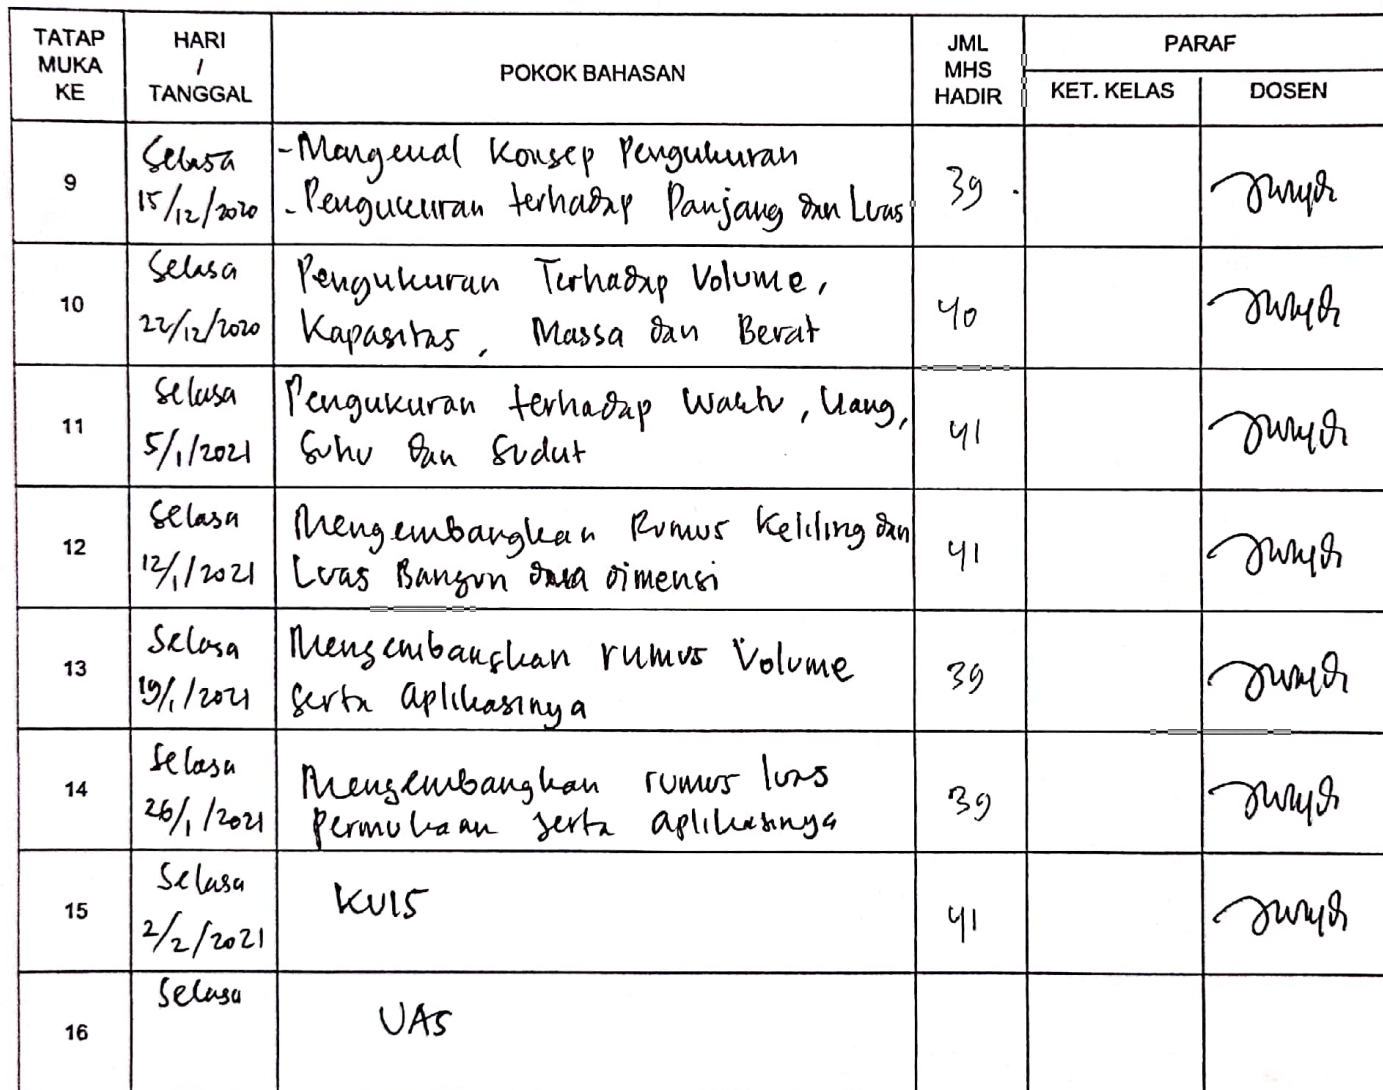 TATAP MUKA KE
HARI / TANGGAL
POKOK BAHASAN
JML MHS HADIR
PARAF
KET. KELAS
DOSEN
9
Selasa
15/12/2020
- Mengenal Konsep Pengukuran
- Pengukuran terhadap Panjang dan Luas
39
10
Selasa
22/12/2020
Pengukuran Terhadap Volume,
Kapasitas, Massa dan Berat
40
11
Selasa
5/1/2021
Pengukuran terhadap Waktu, Uang,
Suhu dan Sudut
41
12
Selasa
12/1/2021
Mengembangkan Rumus Keliling dan
Luas Bangun dua dimensi
41
13
Selasa
19/1/2021
Mengembangkan rumus Volume
serta aplikasinya
39
14
Selasa
26/1/2021
Mengembangkan rumus luas
permukaan serta aplikasinya
39
15
Selasa
2/2/2021
KUIS
41
16
Selasa
UAS